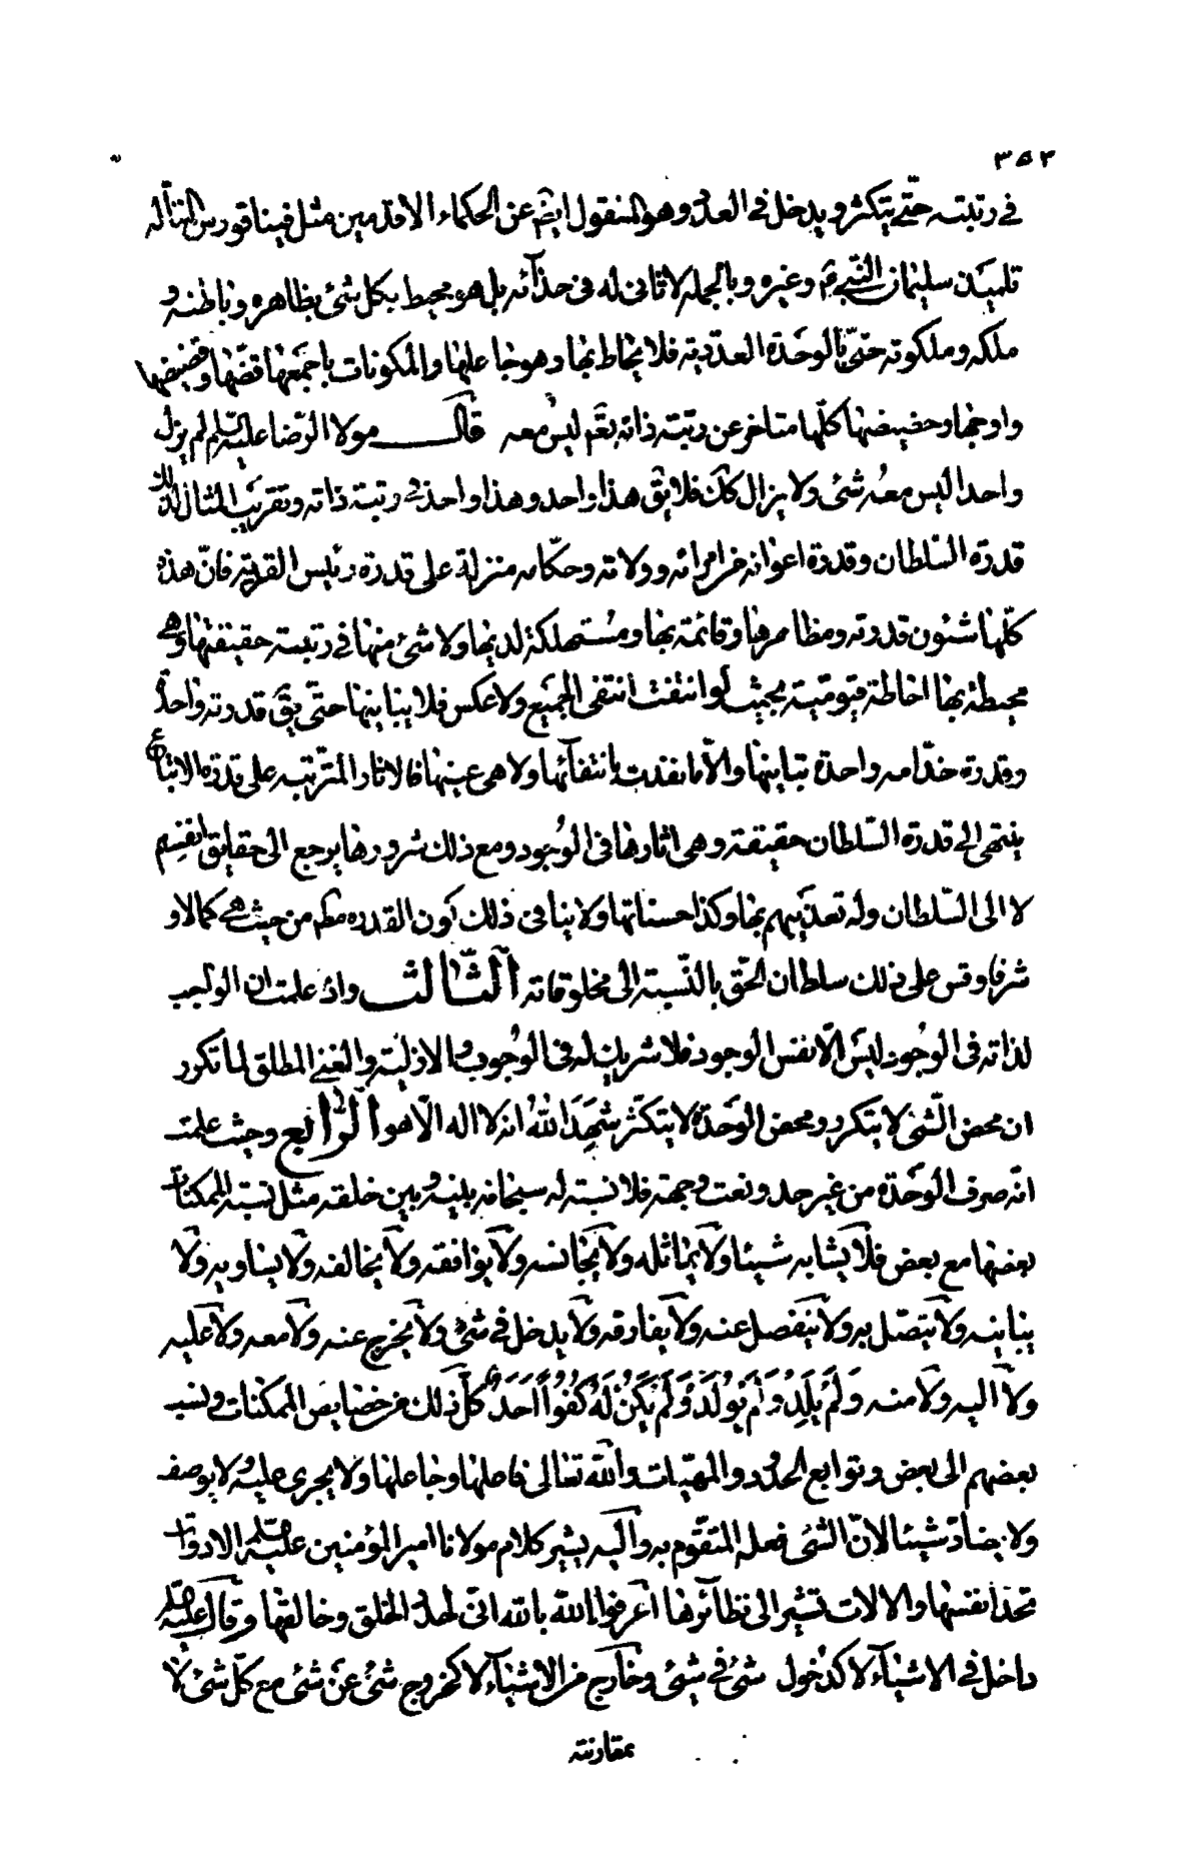 ٣٥٢
في رتبته حتّى يتكثر ويدخل في العدد وهو المنقول ايضم عن الحكماء الاقدمين مثل فيثاقورس المتاله
تلميذ سليمان النبي ع وغيره وبالجمله لا ثانى له فى حد ذاته بل هو محيط بكل شئ بظاهره وباطنه و
ملكه وملكوته حتى بالوحدة العدديته فلا يحاط بها وهو جاعلها والمكونات باجمعها قضّها وقضيضها
واوجها وحضيضها كلّها متاخر عن رتبته ذاته بقى ليس معه قال مولا الرّضا عليه السّلم لم يزل
واحدا ليس معه شئ ولا يزال كك فلا يق هذا واحد وهذا واحد في رتبة ذاته وتقريب المثال لذلك
قدرة السّلطان وقدرة اعوانه من امرائه وولاته وحكّامه منزلة على قدرة رئيس القريته فانّ هذه
كلّها شئون قدرته ومظاهرها وقائمة بها ومستهلكة لديها ولا شئ منها في رتبته حقيقتها وهي
محيطة بها احاطة قيوميّته بحيث لو انتفت انتفى الجميع ولا عكس فلا يباينها حتّى يق قدرته واحدة
وقدرة خدّامه واحدة تباينها والّا ما نفدت بانتفآئها ولا هى عينها فالاثار المترتبه على قدرة الاتباع
ينتهى الى قدرة السّلطان حقيقته وهى اثارها فى الوجود ومع ذلك شرورها يرجع الى حقايق انفسهم
لا الى السّلطان وله تعذيبهم بها وكذا حسناتها ولا ينافى ذلك كون القدره مطم من حيث هي كمالا و
شرفا وقس على ذلك سلطان الحقّ بالنّسبته الى مخلوقاته الثّالث واذ علمت ان الواجب
لذاته فى الوجود ليس الّا نفس الوجود فلا شريك له فى الوجوب والازليّته والغنى المطلق لما تكرر
ان محض الشئ لا يتكرر ومحض الوحدة لا يتكثّر شهد الله انه لا اله الّا هو الرّابع وحيث علمت
انّه صرف الوحدة من غير حد ونعت وجهته فلا نسبته له سبحانه بينه وبين خلقه مثل نسبته الممكنات
بعضها مع بعض فلا يشابه شيئا ولا يماثله ولا يجانسه ولا يوافقه ولا يخالفه ولا يساويه ولا
يباينه ولا يتصّل به ولا ينفصل عنه ولا يفارقه ولا يدخل في شئ ولا يخرج عنه ولا معه ولا عليه
ولا اليه ولا منه وَلَمْ يَلِدْ وَلَمْ يُولَدْ وَلَمْ يَكُنْ لَهُ كُفُوًا اَحَدٌ كلّ ذلك من خصايص الممكنات ونسب
بعضهم الى بعض وتوابع الحدود والمهيّات والله تعالى فاعلها وجاعلها ولا يجرى عليه ولا يوصف
ولا يضادّ شيئا لانّ الشئ فعله المتقوّم به واليه يشير كلام مولانا امير المؤمنين عليه السلم الادوات
تحد انفسها والالات تشير الى نظائرها اعرفوا الله بالله انّى لهذه الخلق وخالقها وقال عليه السلم
داخل في الاشيآء لا كدخول شئ في شئ وخارج من الاشيآء لا كخروج شئ عن شئ مع كلّ شئ لا
بمقارنته